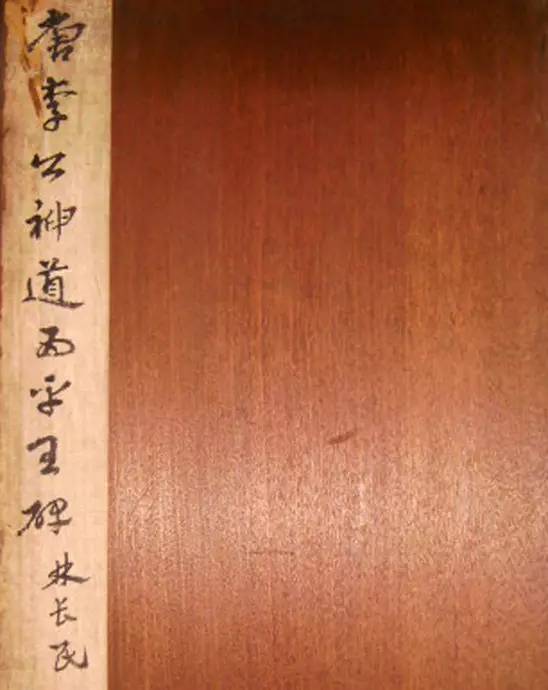 唐李公神道西平王碑
林长民